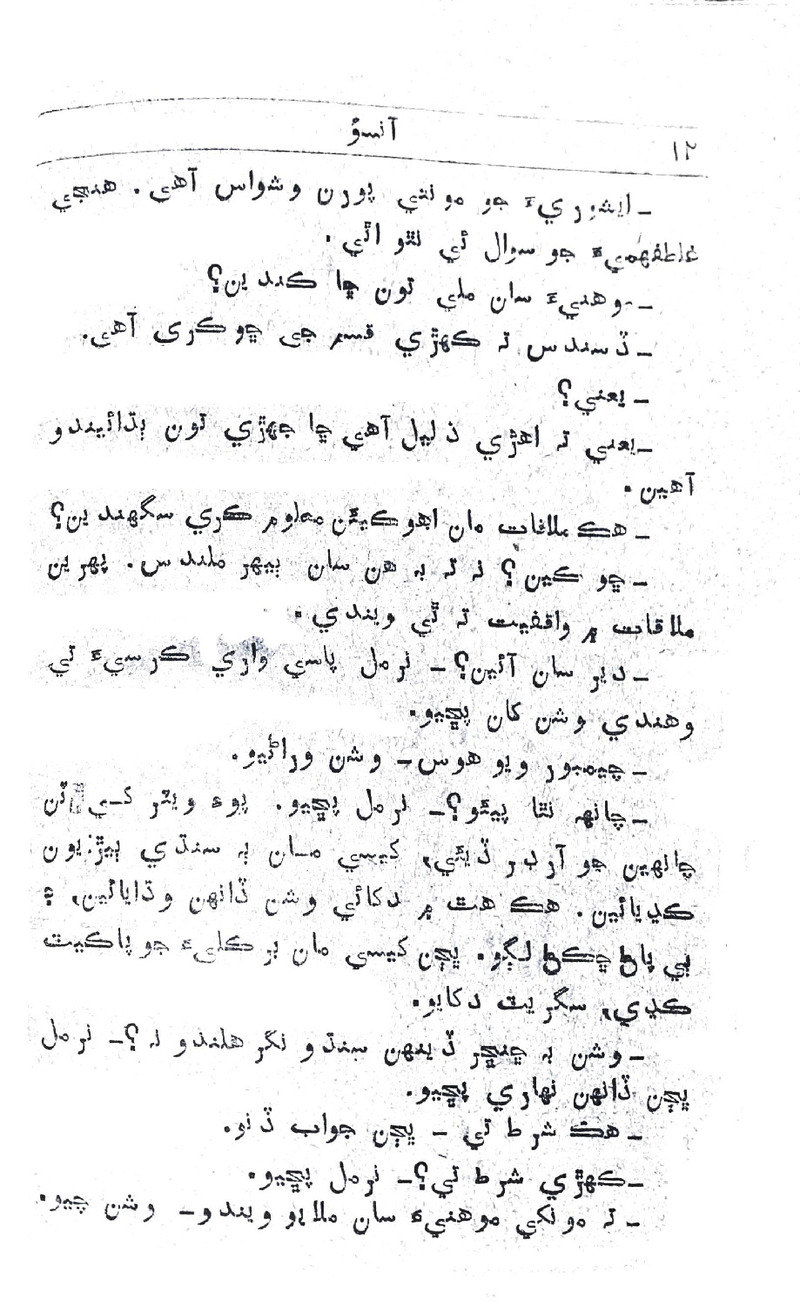 آنسوُ
١٢
ـ ايشوريءَ جو مونتي پورن وشواس آهي. هنجي
غلطفهميءَ جو سوال ئي نٿو اٿي.
ـ موهنيءَ سان ملي تون ڇا ڪندين؟
ـ ڏسندس تہ ڪهڙي قسم جي ڇوڪري آهي.
ـ يعني؟
ـ يعني تہ اهڙي ذليل آهي ڇا جهڙي تون ٻڌائيندو
آهين.
ـ هڪ ملاقات مان اهو ڪيئن معلوم ڪري سگهندين؟
ـ ڇو ڪين؟ نہ تہ بہ هن سان ٻيهر ملندس. پهرين
ملاقات ۾ واقفيت تہ ٿي ويندي.
ـ دير سان آئين؟ ـ نرمل پاسي واري ڪرسيءَ تي
وهندي وشن کان پڇيو.
ـ چيمبور ويو هوس ـ وشن وراڻيو.
ـ چانهہ نٿا پيئو؟ ـ نرمل پڇيو. پوءِ ويٽر کي ٽن
چانهين جو آرڊر ڏيئي، کيسي مان ٻہ سنڌي ٻيڙيون
ڪڍيائين. هڪ هٿ ۾ دکائي وشن ڏانهن وڌايائين، ۽
ٻي پاڻ ڇڪڻ لڳو. ڀڄن کيسي مان برڪليءَ جو پاڪيٽ
ڪڍي، سگريٽ دکايو.
ـ وشن بہ ڇنڇر ڏينهن سنڌو نگر هلندو نہ؟ ـ نرمل
ڀڄن ڏانهن نهاري پڇيو.
ـ هڪ شرط تي ـ ڀڄن جواب ڏنو.
ـ ڪهڙي شرط تي؟ ـ نرمل پڇيو.
ـ تہ مونکي موهنيءَ سان ملايو ويندو ـ وشن چيو.